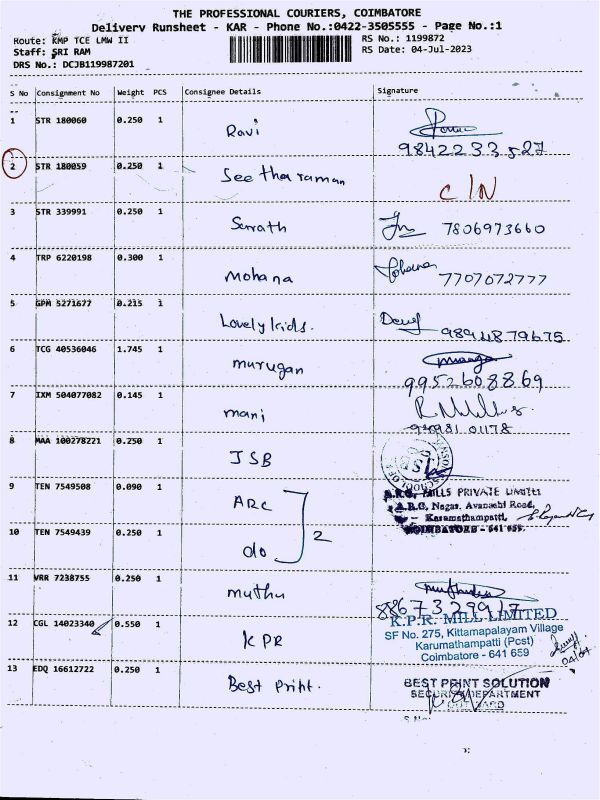 THE PROFESSIONAL COURIERS, COIMBATORE
Delivery Runsheet - KAR - Phone No.:0422-3505555 - Page No.:1
Route: KMP TCE LMW II RS No.: 1199872
Staff: SRI RAM RS Date: 04-Jul-2023
DRS No.: DCJB119987201
S No Consignment No Weight PCS Consignee Details Signature
1 STR 180060 0.250 1 Ravi
9842233527
2 STR 180059 0.250 1 Seetharaman C/N
3 STR 339991 0.250 1 Sarath 7806973660
4 TRP 6220198 0.300 1 Mohana Mohana 7707072777
5 GPM 5271677 0.215 1 Lovely kids. 9894879675
6 TCG 40536046 1.745 1 murugan
9952608869
7 IXM 504077082 0.145 1 mani
01178
8 MAA 100278221 0.250 1 JSB
9 TEN 7549508 0.090 1 ARC 2 A.R.C. MILLS PRIVATE LIMITED
A.R.C. Nagar, Avanashi Road,
Karumathampatti,
COIMBATORE - 641 659.
10 TEN 7549439 0.250 1 do
11 VRR 7238755 0.250 1 muthu
8867329917
12 CGL 14023340 0.550 1 KPR K.P.R. MILL LIMITED
SF No. 275, Kittamapalayam Village
Karumathampatti (Post)
Coimbatore - 641 659
13 EDQ 16612722 0.250 1 Best Print. BEST PRINT SOLUTION
SECURITY DEPARTMENT